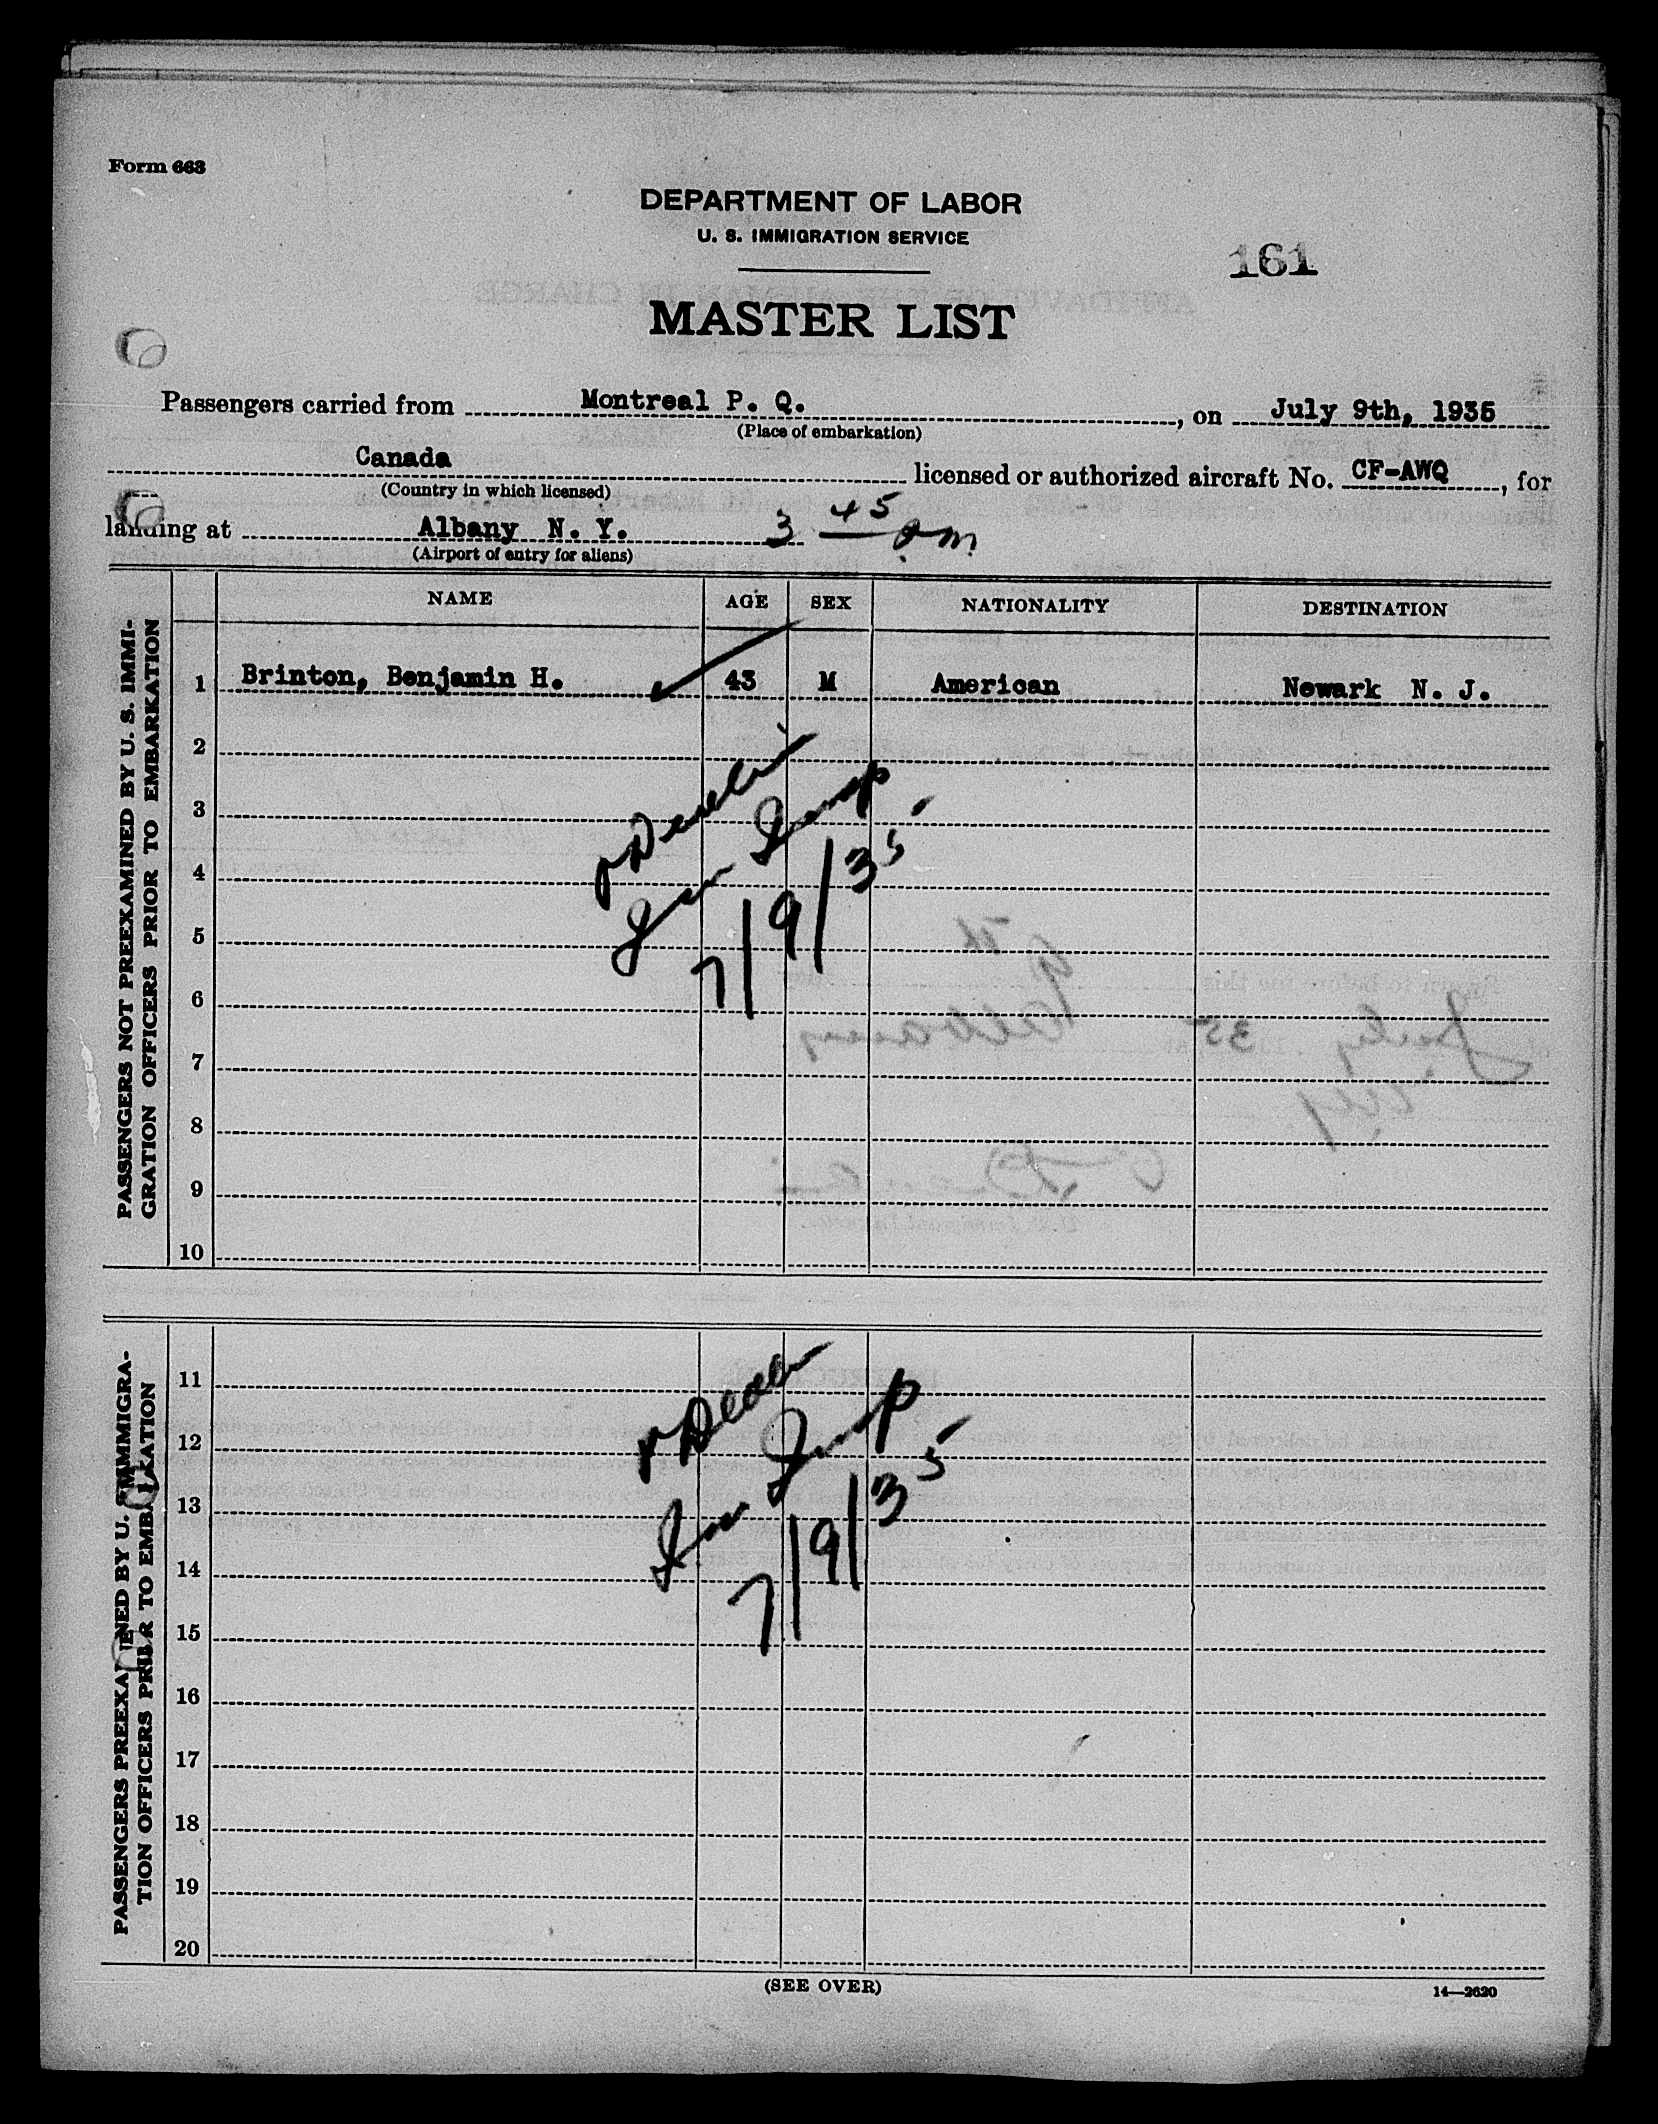 Form 663
DEPARTMENT OF LABOR
U. S. IMMIGRATION SERVICE
161
MASTER LIST
Passengers carried from Montreal P. Q. , on July 9th, 1935
(Place of embarkation)
Canada licensed or authorized aircraft No. CF-AWQ , for
(Country in which licensed)
landing at Albany N. Y. 3 45 pm
(Airport of entry for aliens)
NAME AGE SEX NATIONALITY DESTINATION
PASSENGERS NOT PREEXAMINED BY U. S. IMMI-
GRATION OFFICERS PRIOR TO EMBARKATION
1 Brinton, Benjamin H. 43 M American Newark N. J.
2
3
4
5
6
7
8
9
10
7/9/35
PASSENGERS PREEXAMINED BY U. S. IMMIGRA-
TION OFFICERS PRIOR TO EMBARKATION
11
12
13
14
15
16
17
18
19
20
7/9/35
(SEE OVER)
14—2620